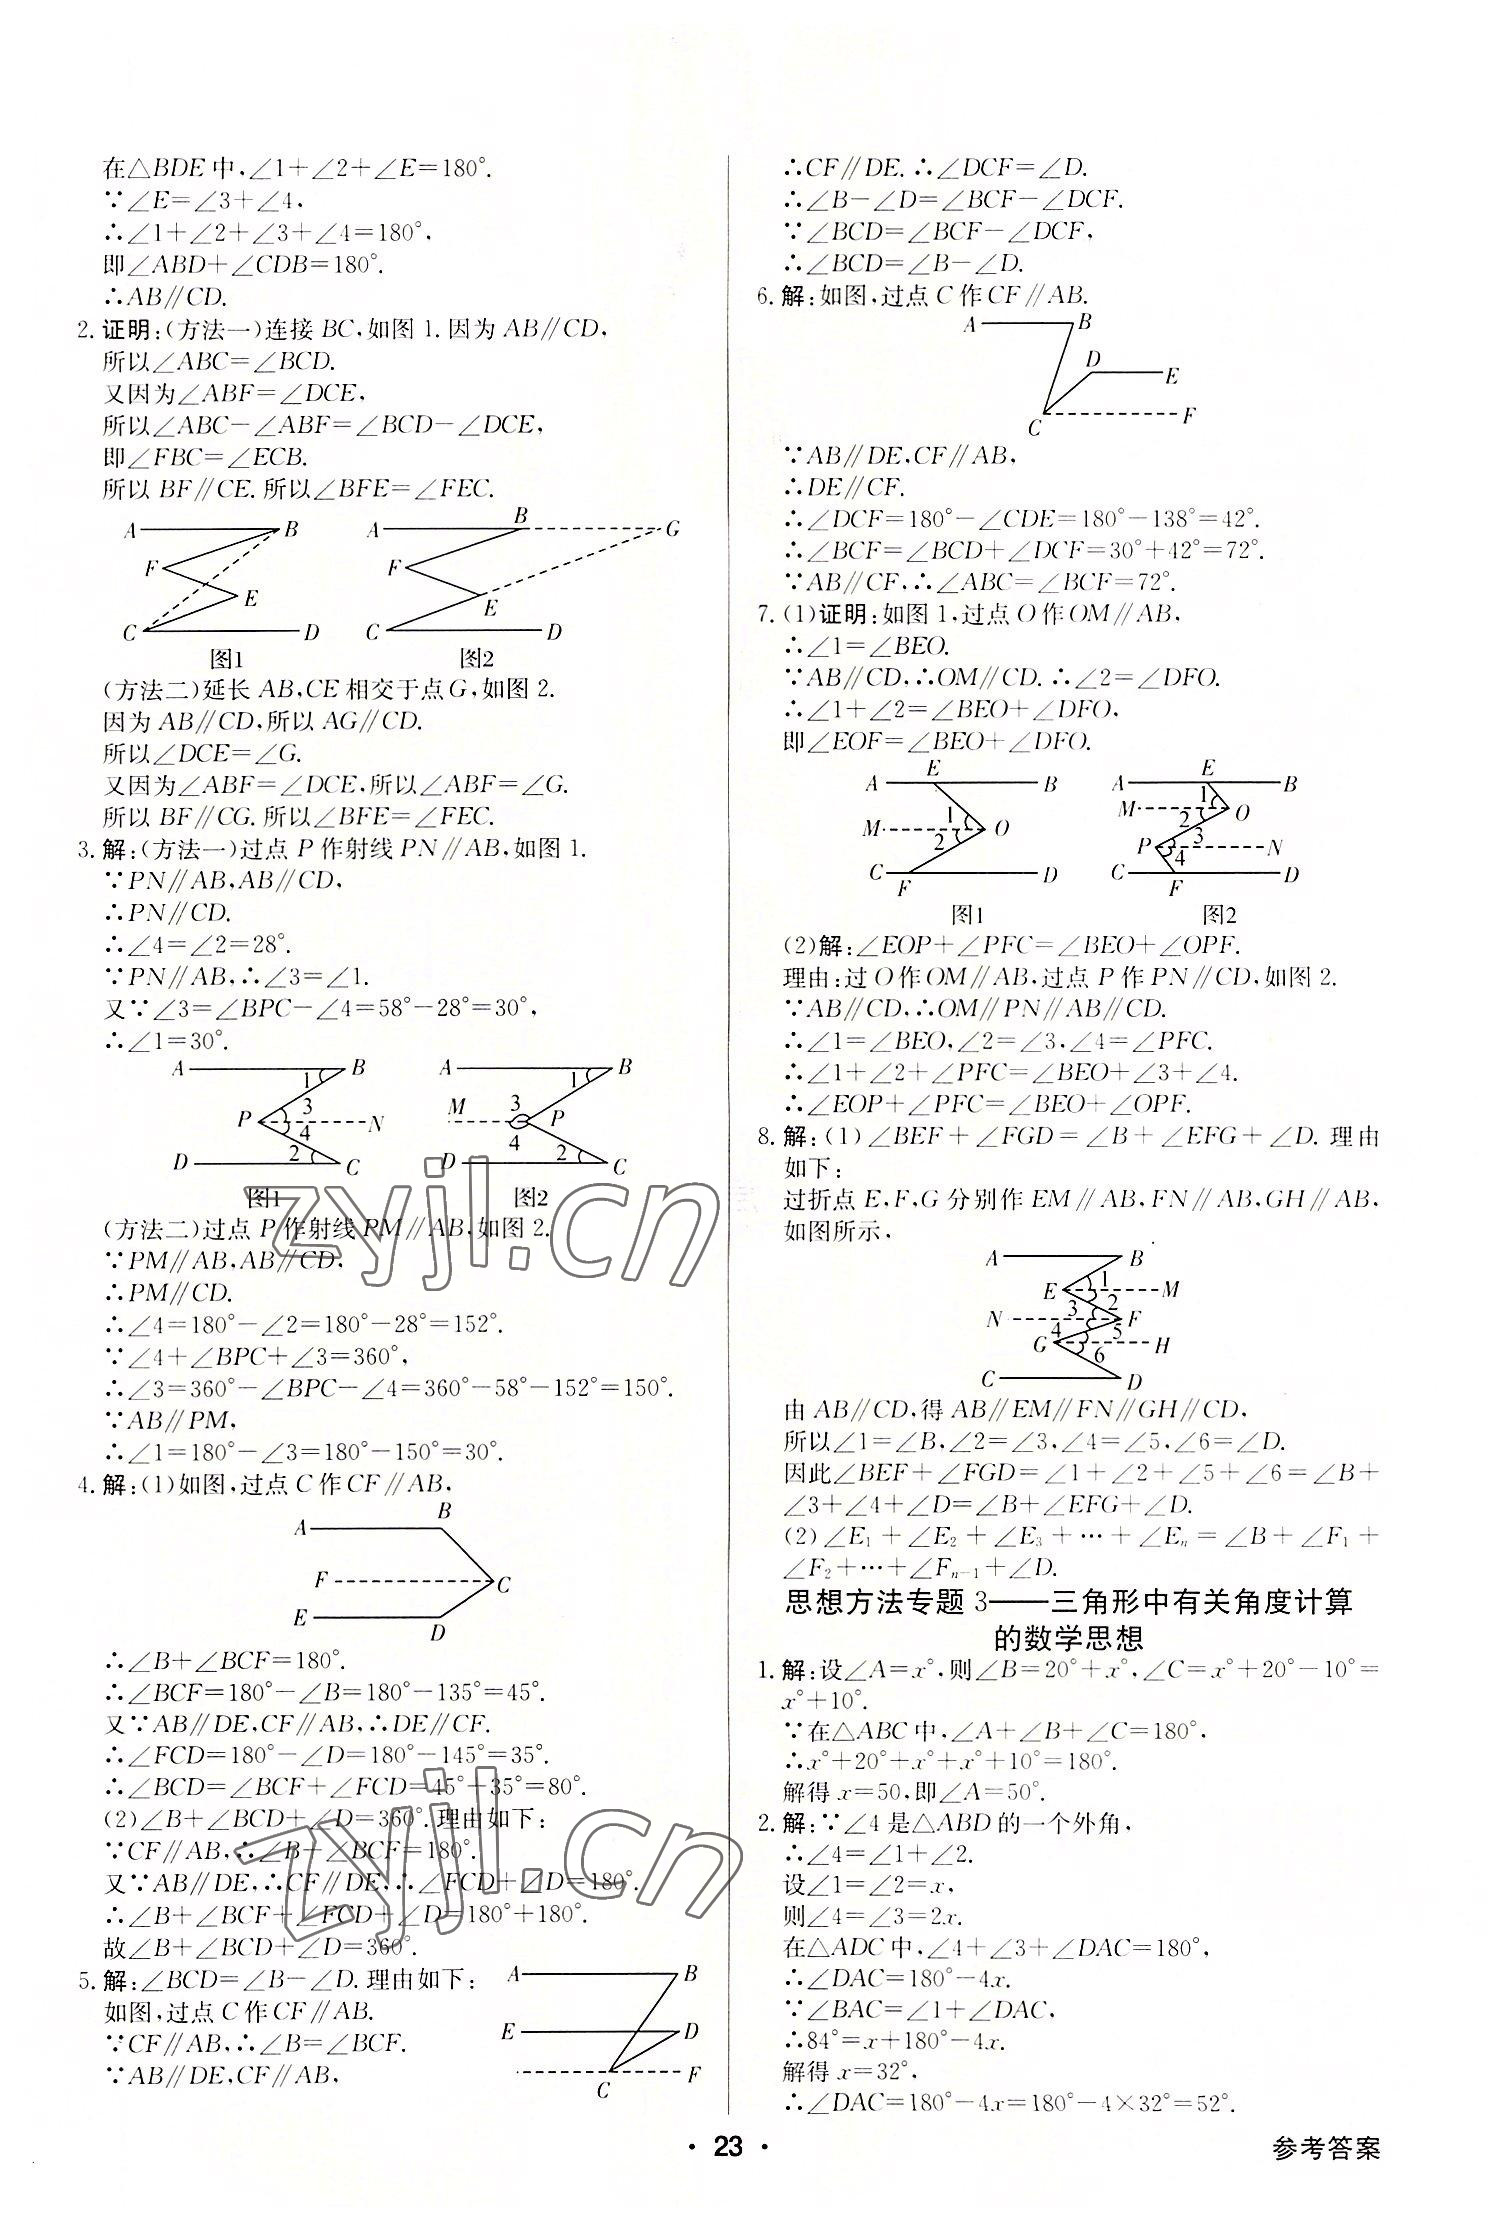 在△BDE中,∠1+∠2+∠E=180°.
∵∠E=∠3+∠4,
∴∠1+∠2+∠3+∠4=180°,
即∠ABD+∠CDB=180°.
∴AB∥CD.
2.证明:(方法一)连接BC,如图1.因为AB∥CD,
所以∠ABC=∠BCD.
又因为∠ABF=∠DCE,
所以∠ABC-∠ABF=∠BCD-∠DCE,
即∠FBC=∠ECB.
所以BF∥CE.所以∠BFE=∠FEC.
A B A B G
F F
E E
C D C D
图1 图2
(方法二)延长AB,CE相交于点G,如图2.
因为AB∥CD,所以AG∥CD.
所以∠DCE=∠G.
又因为∠ABF=∠DCE,所以∠ABF=∠G.
所以BF∥CG.所以∠BFE=∠FEC.
3.解:(方法一)过点P作射线PN∥AB,如图1.
∵PN∥AB,AB∥CD,
∴PN∥CD.
∴∠4=∠2=28°.
∵PN∥AB,∴∠3=∠1.
又∵∠3=∠BPC-∠4=58°-28°=30°,
∴∠1=30°.
A 1 B A 1 B
P 3 4 N M 3 4 P
D 2 C D 2 C
图1 图2
(方法二)过点P作射线PM∥AB,如图2.
∵PM∥AB,AB∥CD,
∴PM∥CD.
∴∠4=180°-∠2=180°-28°=152°.
∵∠4+∠BPC+∠3=360°,
∴∠3=360°-∠BPC-∠4=360°-58°-152°=150°.
∵AB∥PM,
∴∠1=180°-∠3=180°-150°=30°.
4.解:(1)如图,过点C作CF∥AB,
A B
F C
E D
∴∠B+∠BCF=180°.
∴∠BCF=180°-∠B=180°-135°=45°.
又∵AB∥DE,CF∥AB,∴DE∥CF.
∴∠FCD=180°-∠D=180°-145°=35°.
∴∠BCD=∠BCF+∠FCD=45°+35°=80°.
(2)∠B+∠BCD+∠D=360°.理由如下:
∵CF∥AB,∴∠B+∠BCF=180°.
又∵AB∥DE,∴CF∥DE,∴∠FCD+∠D=180°.
∴∠B+∠BCF+∠FCD+∠D=180°+180°.
故∠B+∠BCD+∠D=360°.
5.解:∠BCD=∠B-∠D.理由如下:
如图,过点C作CF∥AB.
∵CF∥AB,∴∠B=∠BCF.
∵AB∥DE,CF∥AB,
A B
E D
C F
∴CF∥DE.∴∠DCF=∠D.
∴∠B-∠D=∠BCF-∠DCF.
∵∠BCD=∠BCF-∠DCF,
∴∠BCD=∠B-∠D.
6.解:如图,过点C作CF∥AB.
A B
D E
C F
∵AB∥DE,CF∥AB,
∴DE∥CF.
∴∠DCF=180°-∠CDE=180°-138°=42°.
∴∠BCF=∠BCD+∠DCF=30°+42°=72°.
∵AB∥CF,∴∠ABC=∠BCF=72°.
7.(1)证明:如图1,过点O作OM∥AB,
∴∠1=∠BEO.
∵AB∥CD,∴OM∥CD.∴∠2=∠DFO.
∴∠1+∠2=∠BEO+∠DFO,
即∠EOF=∠BEO+∠DFO.
A E B A E B
M 1 2 O M 1 2 O
P 3 4 N
C F D C F D
图1 图2
(2)解:∠EOP+∠PFC=∠BEO+∠OPF.
理由:过O作OM∥AB,过点P作PN∥CD,如图2.
∵AB∥CD,∴OM∥PN∥AB∥CD.
∴∠1=∠BEO,∠2=∠3,∠4=∠PFC.
∴∠1+∠2+∠PFC=∠BEO+∠3+∠4.
∴∠EOP+∠PFC=∠BEO+∠OPF.
8.解:(1)∠BEF+∠FGD=∠B+∠EFG+∠D.理由
如下:
过折点E,F,G分别作EM∥AB,FN∥AB,GH∥AB,
如图所示,
A B
E 1 2 M
N 3 4 F
G 5 6 H
C D
由AB∥CD,得AB∥EM∥FN∥GH∥CD,
所以∠1=∠B,∠2=∠3,∠4=∠5,∠6=∠D.
因此∠BEF+∠FGD=∠1+∠2+∠5+∠6=∠B+
∠3+∠4+∠D=∠B+∠EFG+∠D.
(2)∠E₁+∠E₂+∠E₃+…+∠Eₙ=∠B+∠F₁+
∠F₂+…+∠Fₙ₋₁+∠D.
思想方法专题3——三角形中有关角度计算
的数学思想
1.解:设∠A=x°,则∠B=20°+x°,∠C=x°+20°-10°=
x°+10°.
∵在△ABC中,∠A+∠B+∠C=180°,
∴x°+20°+x°+x°+10°=180°.
解得x=50,即∠A=50°.
2.解:∵∠4是△ABD的一个外角,
∴∠4=∠1+∠2.
设∠1=∠2=x,
则∠4=∠3=2x.
在△ADC中,∠4+∠3+∠DAC=180°,
∴∠DAC=180°-4x.
∵∠BAC=∠1+∠DAC,
∴84°=x+180°-4x.
解得x=32°,
∴∠DAC=180°-4x=180°-4×32°=52°.
·23·
参考答案
zyjl.cn
zyjl.cn